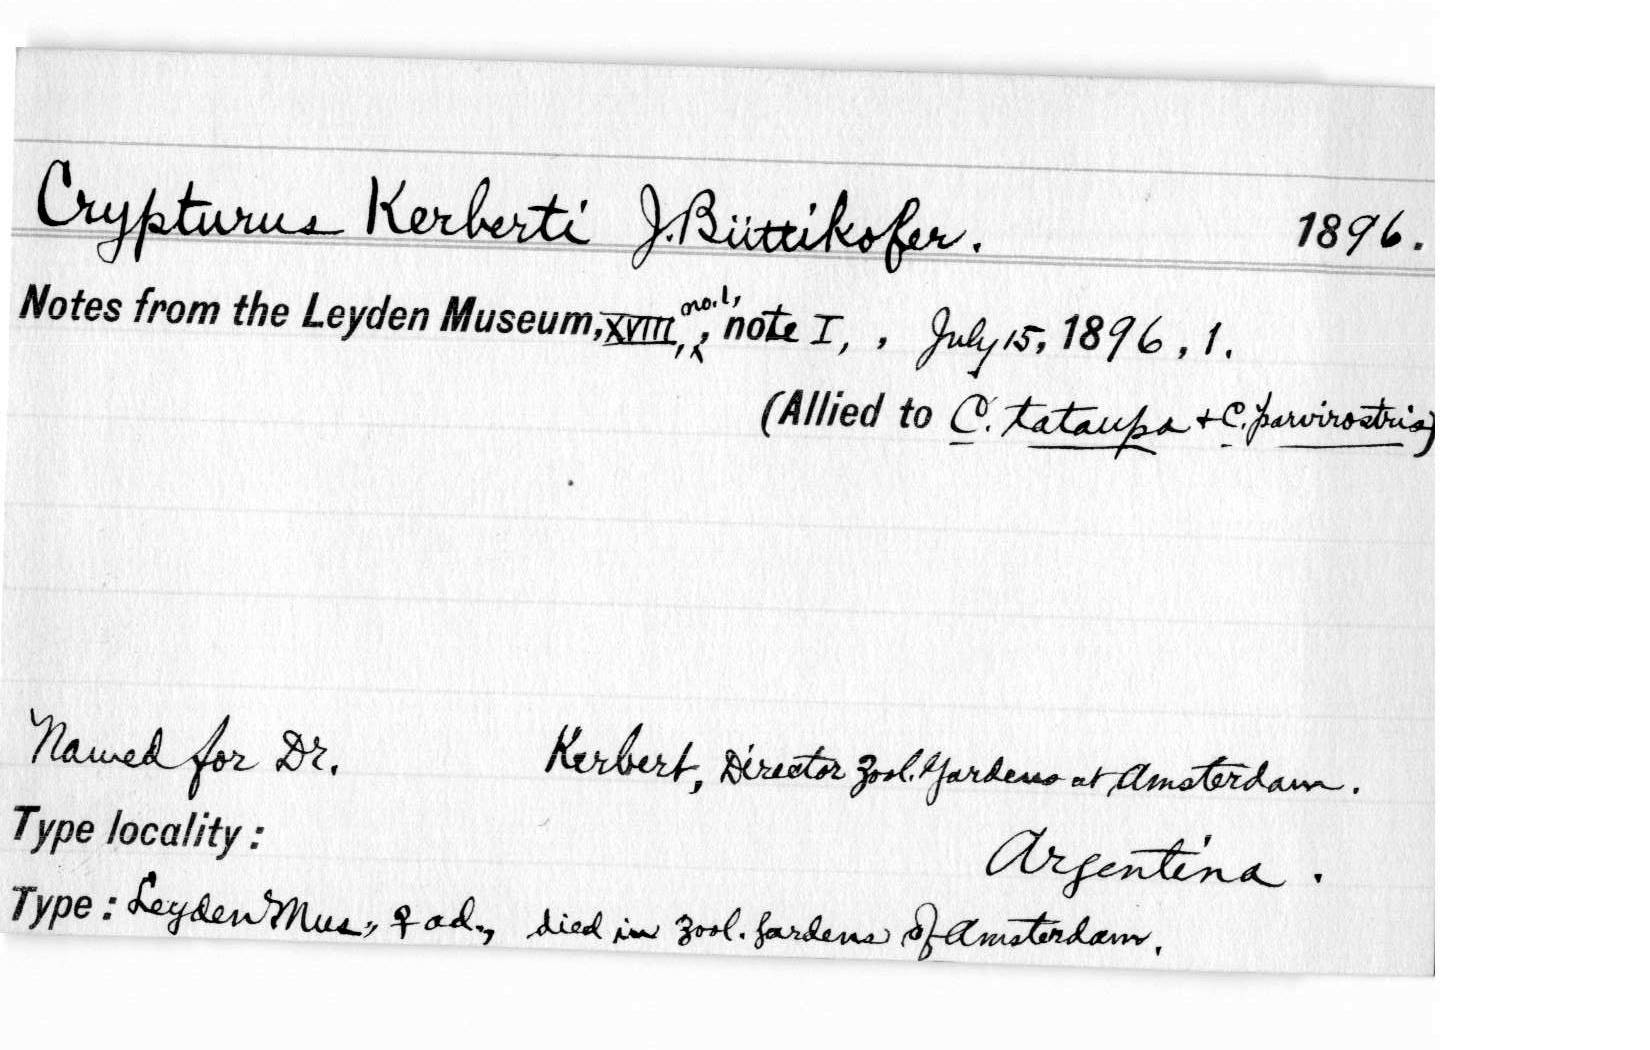 Crypturus Kerberti J. Büttikofer. 1896.
Notes from the Leyden Museum, XVIII, no. 1, , note I, , July 15, 1896, 1.
(Allied to C. tataupa + C. parvirostris)
Named for Dr. Kerbert, Director Zool. Gardens at Amsterdam.
Type locality: Argentina.
Type: Leyden Mus., ♀ ad., died in Zool. Gardens of Amsterdam.